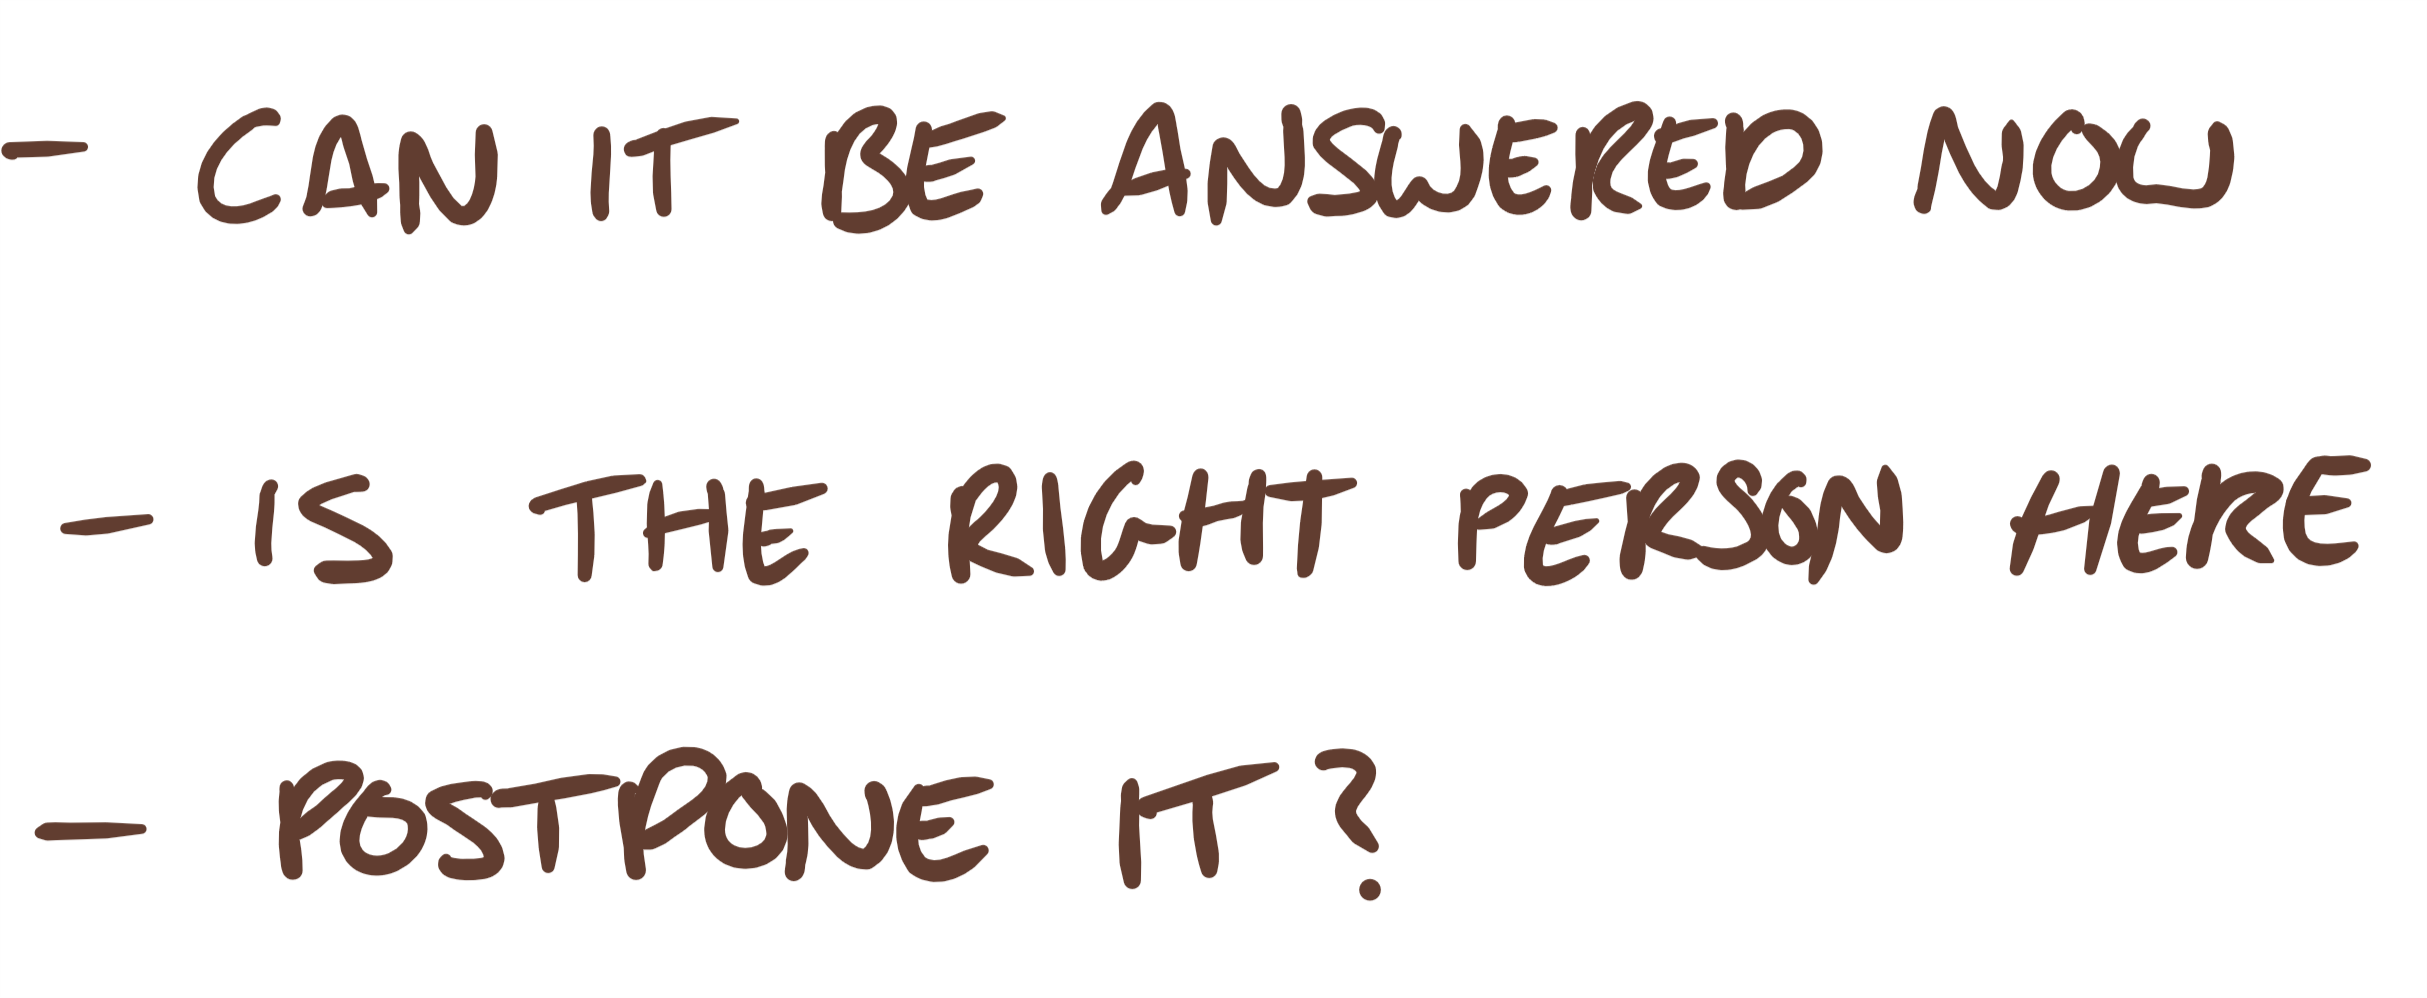 - CAN IT BE ANSWERED NOW
- IS THE RIGHT PERSON HERE
- POSTPONE IT?